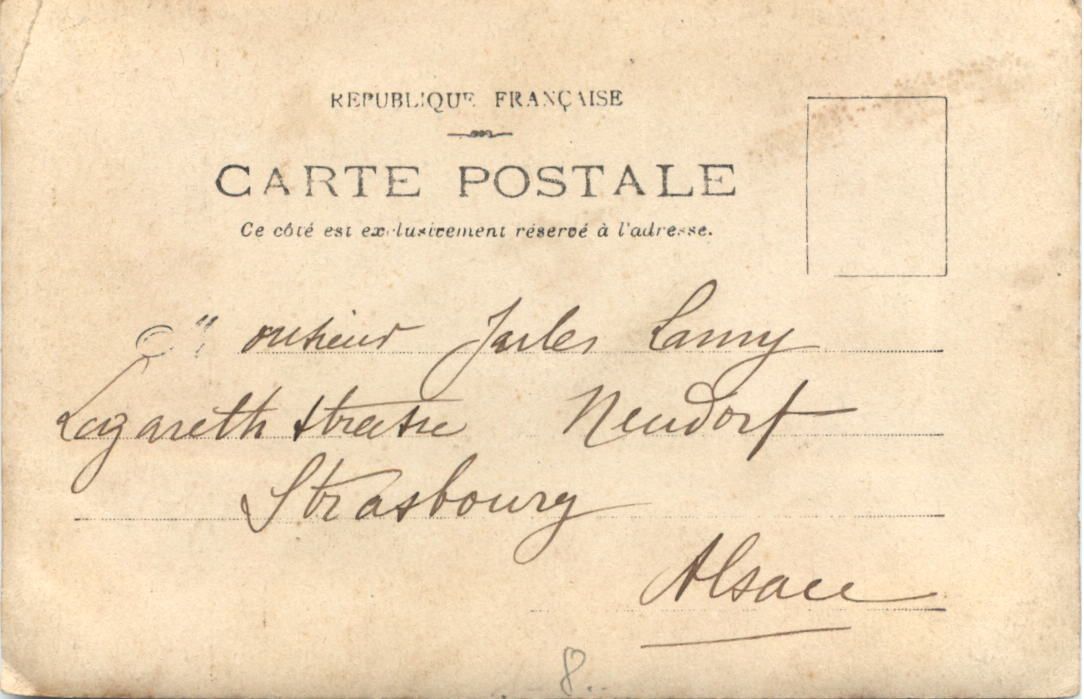 REPUBLIQUE FRANÇAISE
CARTE POSTALE
Ce côté est exclusivement réservé à l'adresse.
Monsieur Jules Lamy
Lazareth strasse Neudorf
Strasbourg
Alsace
8.